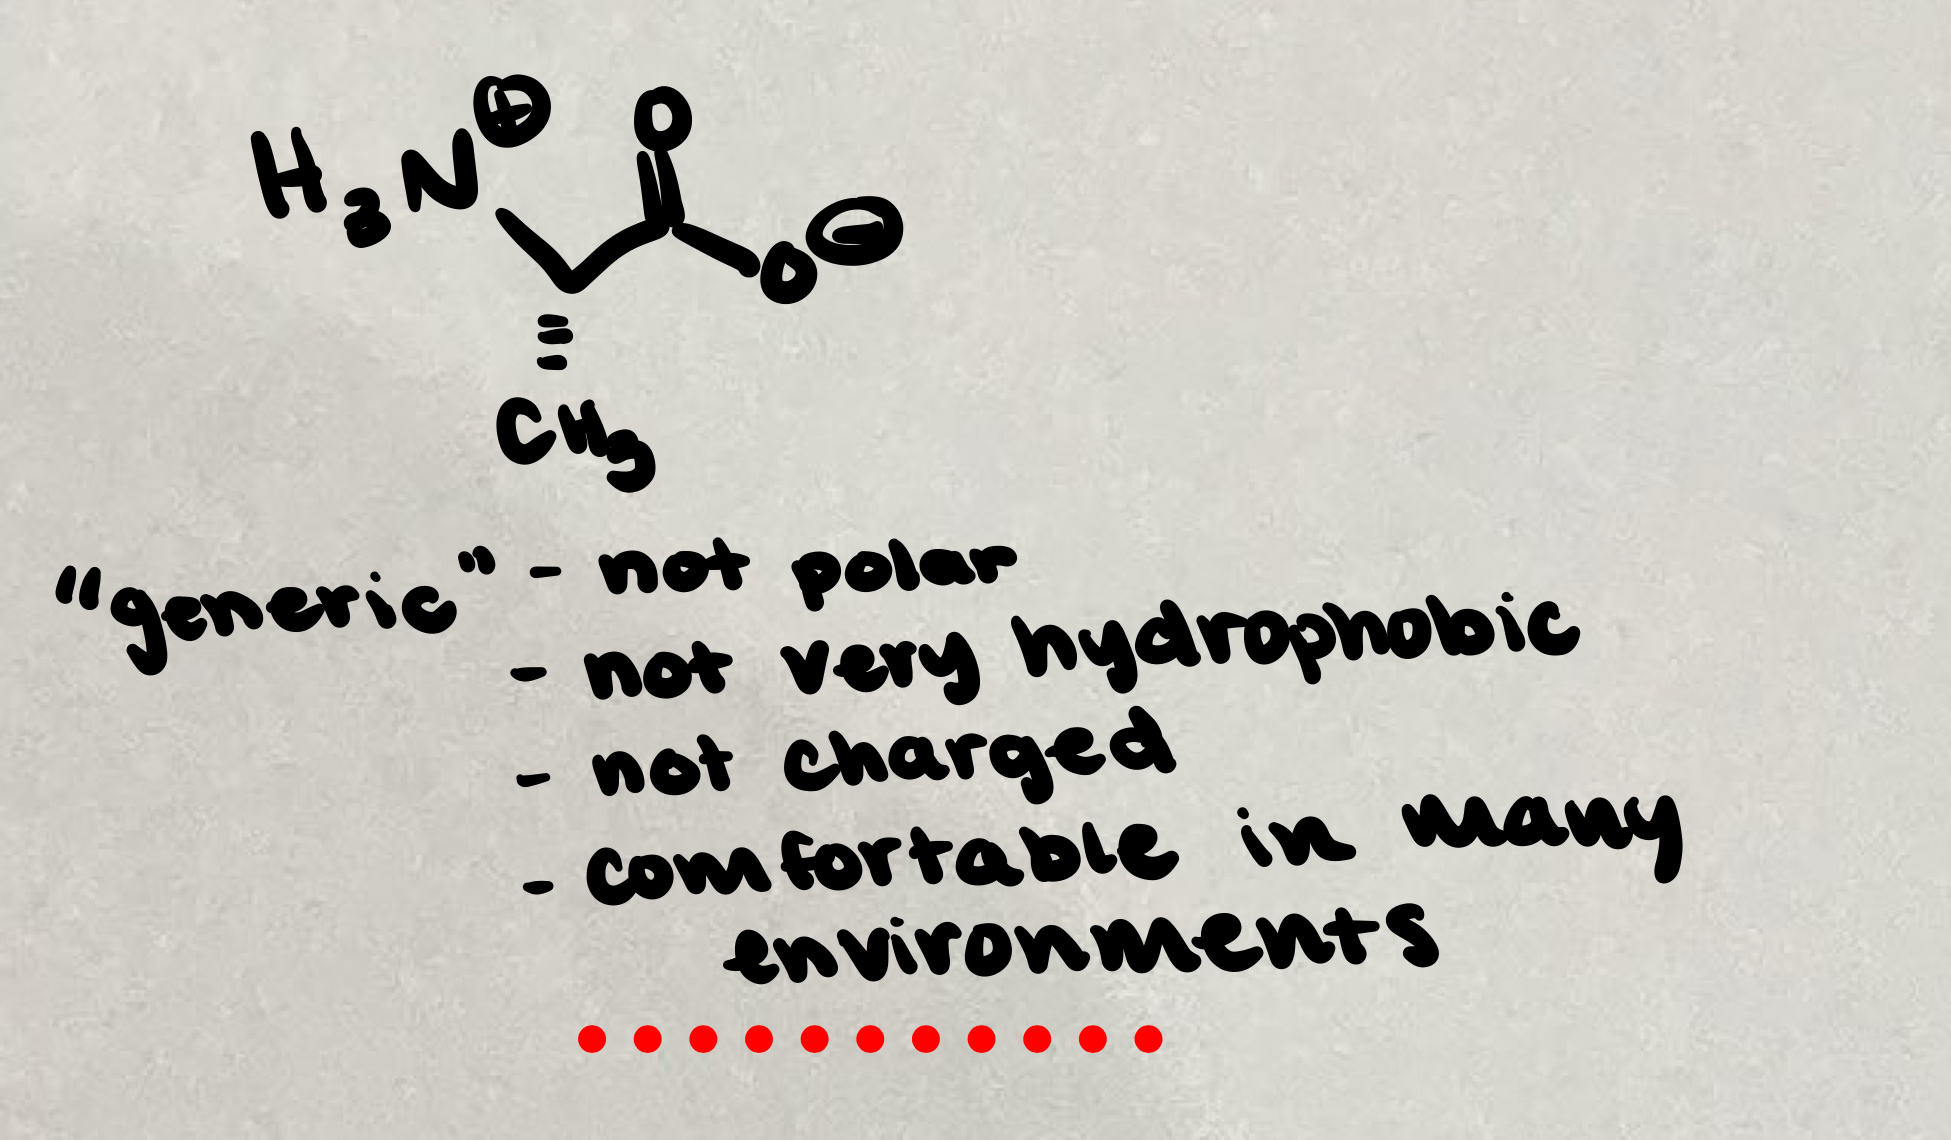 H₃N⊕ O
O⊖
CH₃
"generic" - not polar
- not very hydrophobic
- not charged
- comfortable in many
environments